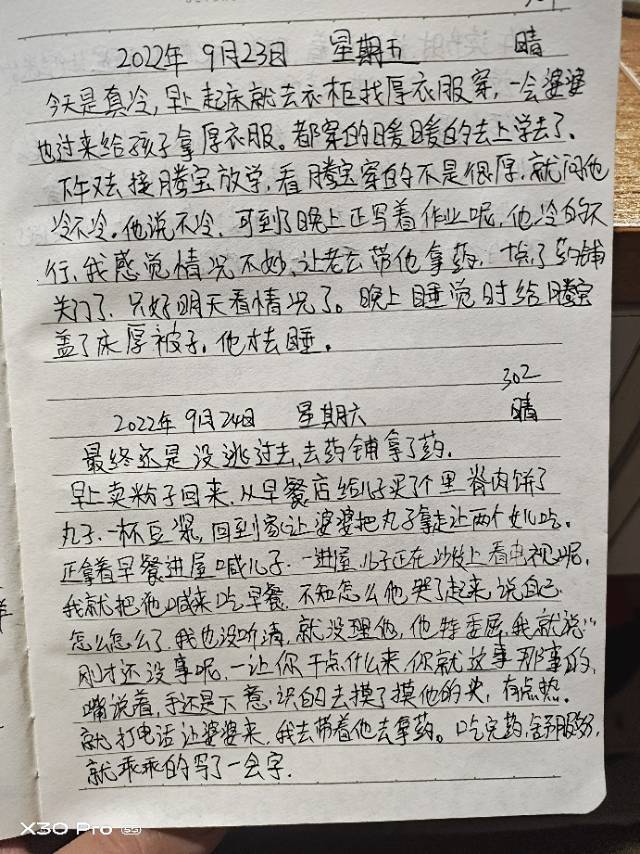 2022年 9月23日 星期五 晴
今天是真冷,早上起床就去衣柜找厚衣服穿,一会婆婆
也过来给孩子拿厚衣服。都穿的暖暖的去上学去了。
下午又去接腾宝放学,看腾宝穿的不是很厚,就问他
冷不冷。他说不冷,可到了晚上正写着作业呢,他冷的不
行,我感觉情况不妙,让老云带他拿药,找了药铺
关门了,只好明天看情况了。晚上睡觉时给腾宝
盖了床厚被子。他才去睡。
302
2022年 9月24日 星期六 晴
最终还是没逃过去,去药铺拿了药.
早上卖粉子回来,从早餐店给儿子买了个里脊肉饼了
丸子.一杯豆浆,回到家让婆婆把丸子拿走让两个女儿吃。
正拿着早餐进屋喊儿子.一进屋,儿子正在沙发上看电视呢,
我就把他喊来吃早餐,不知怎么他哭了起来,说自己
怎么怎么了,我也没听清,就没理他,他特委屈,我就说:"
刚才还没事呢,一让你干点什么来,你就这事那事的,
嘴说着,手还是下意识的去摸了摸他的头,有点热.
就打电话让婆婆来,我去带着他去拿药。吃完药,舒服多,
就乖乖的写了一会字.
X30 Pro 5G